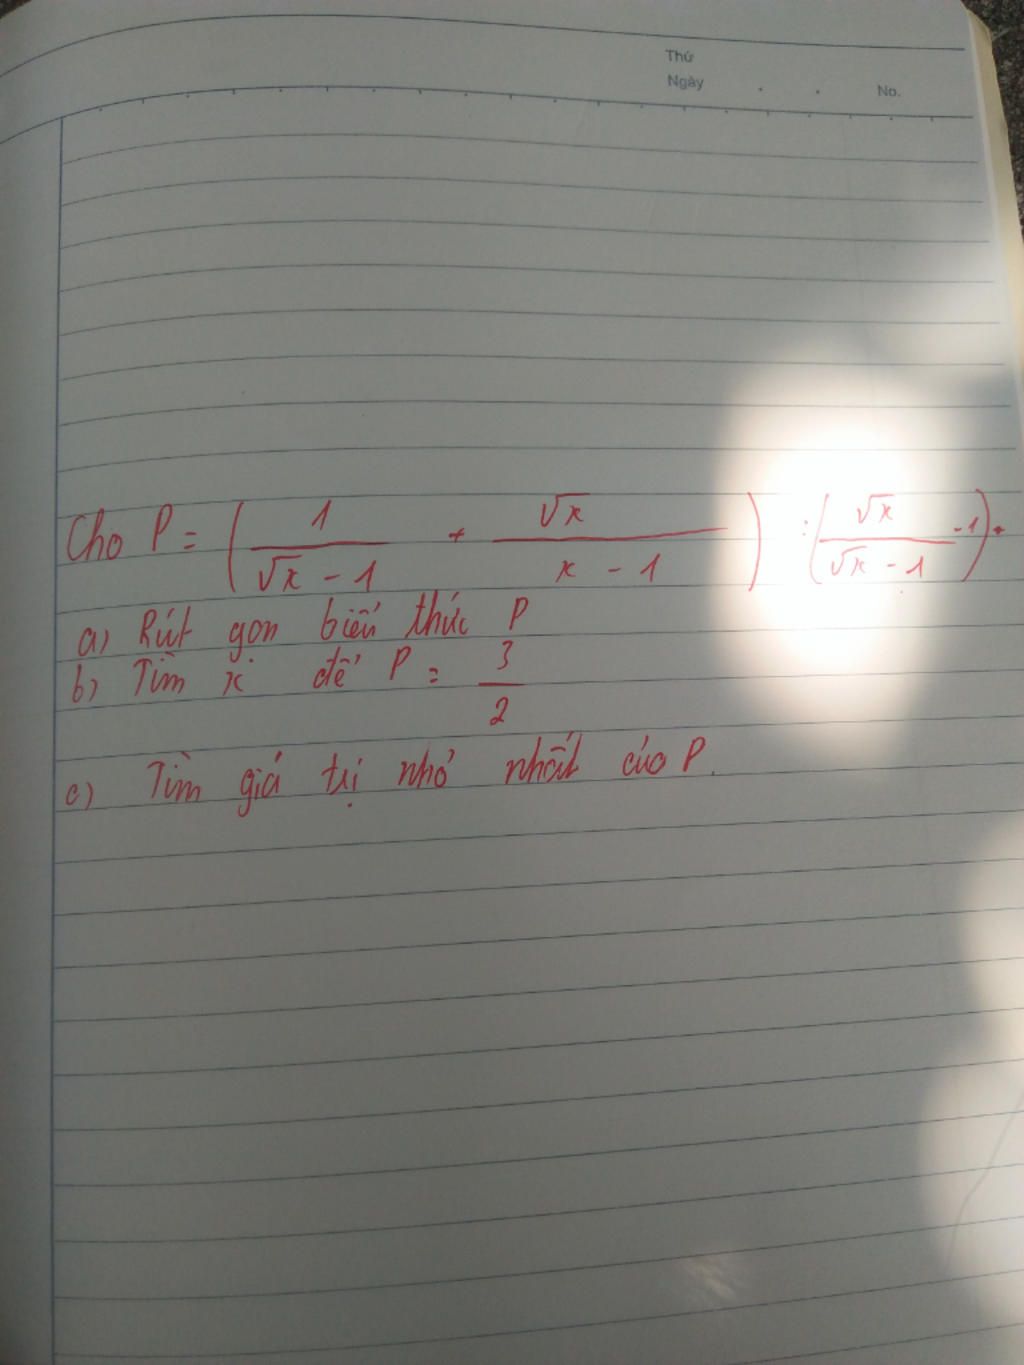 Thứ
Ngày . . No.
Cho P = ( 1 / (√x - 1) + √x / (x - 1) ) : ( √x / (√x - 1) - 1 ).
a) Rút gọn biểu thức P
b) Tìm x để P = 3/2
c) Tìm giá trị nhỏ nhất của P.